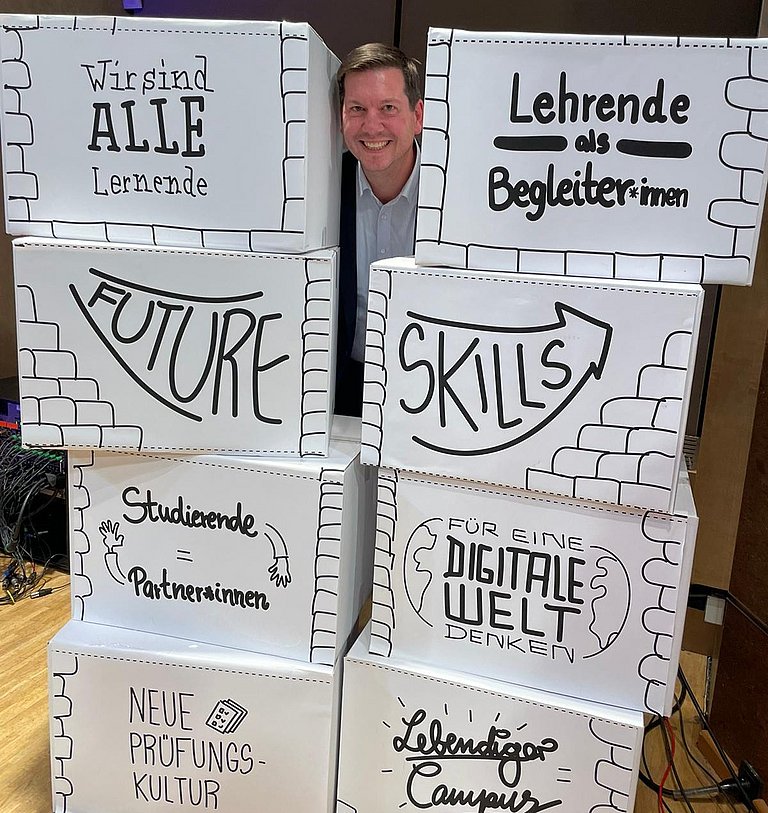 Wir sind
ALLE
Lernende
Lehrende
als
Begleiter*innen
FUTURE
SKILLS
Studierende
=
Partner*innen
FÜR EINE
DIGITALE
WELT
DENKEN
NEUE
PRÜFUNGS-
KULTUR
Lebendiger
Campus =